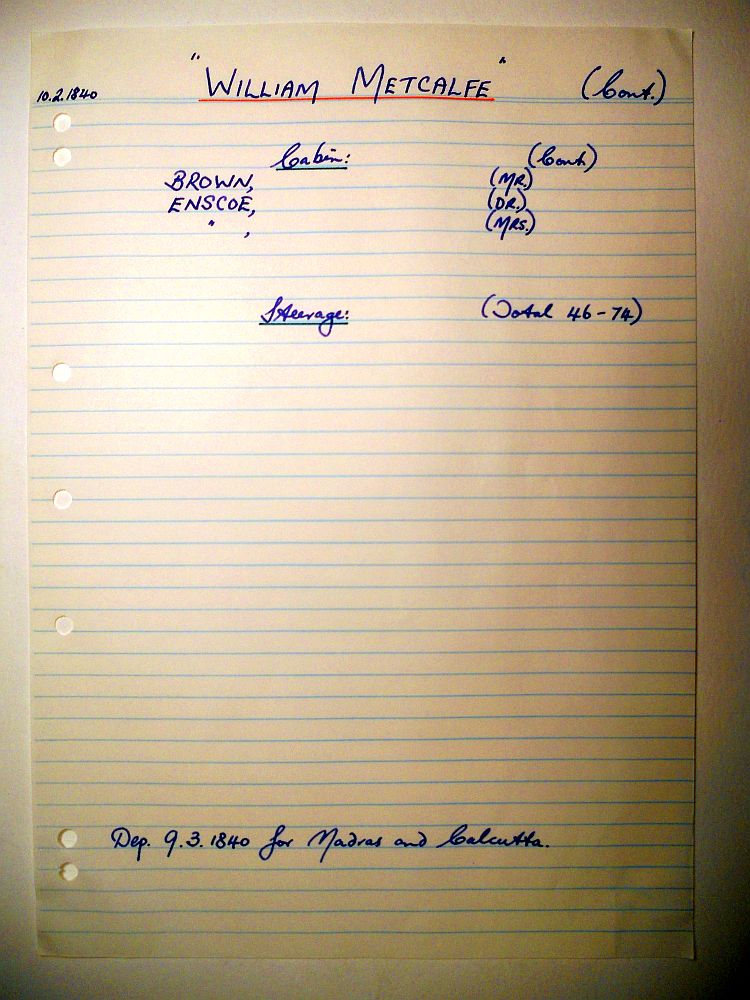 10.2.1840 "WILLIAM METCALFE" (Cont.)
Cabin: (Cont)
BROWN, (MR.)
ENSCOE, (DR.)
" , (MRS.)
Steerage: (Total 46-74)
Dep. 9.3.1840 for Madras and Calcutta.